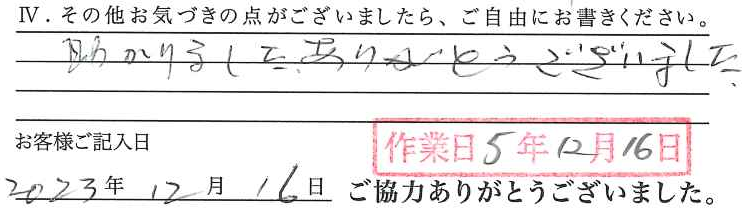 Ⅳ. その他お気づきの点がございましたら、ご自由にお書きください。
助かりました。ありがとうございました。
お客様ご記入日
作業日5年12月16日
2023年 12月 16日 ご協力ありがとうございました。